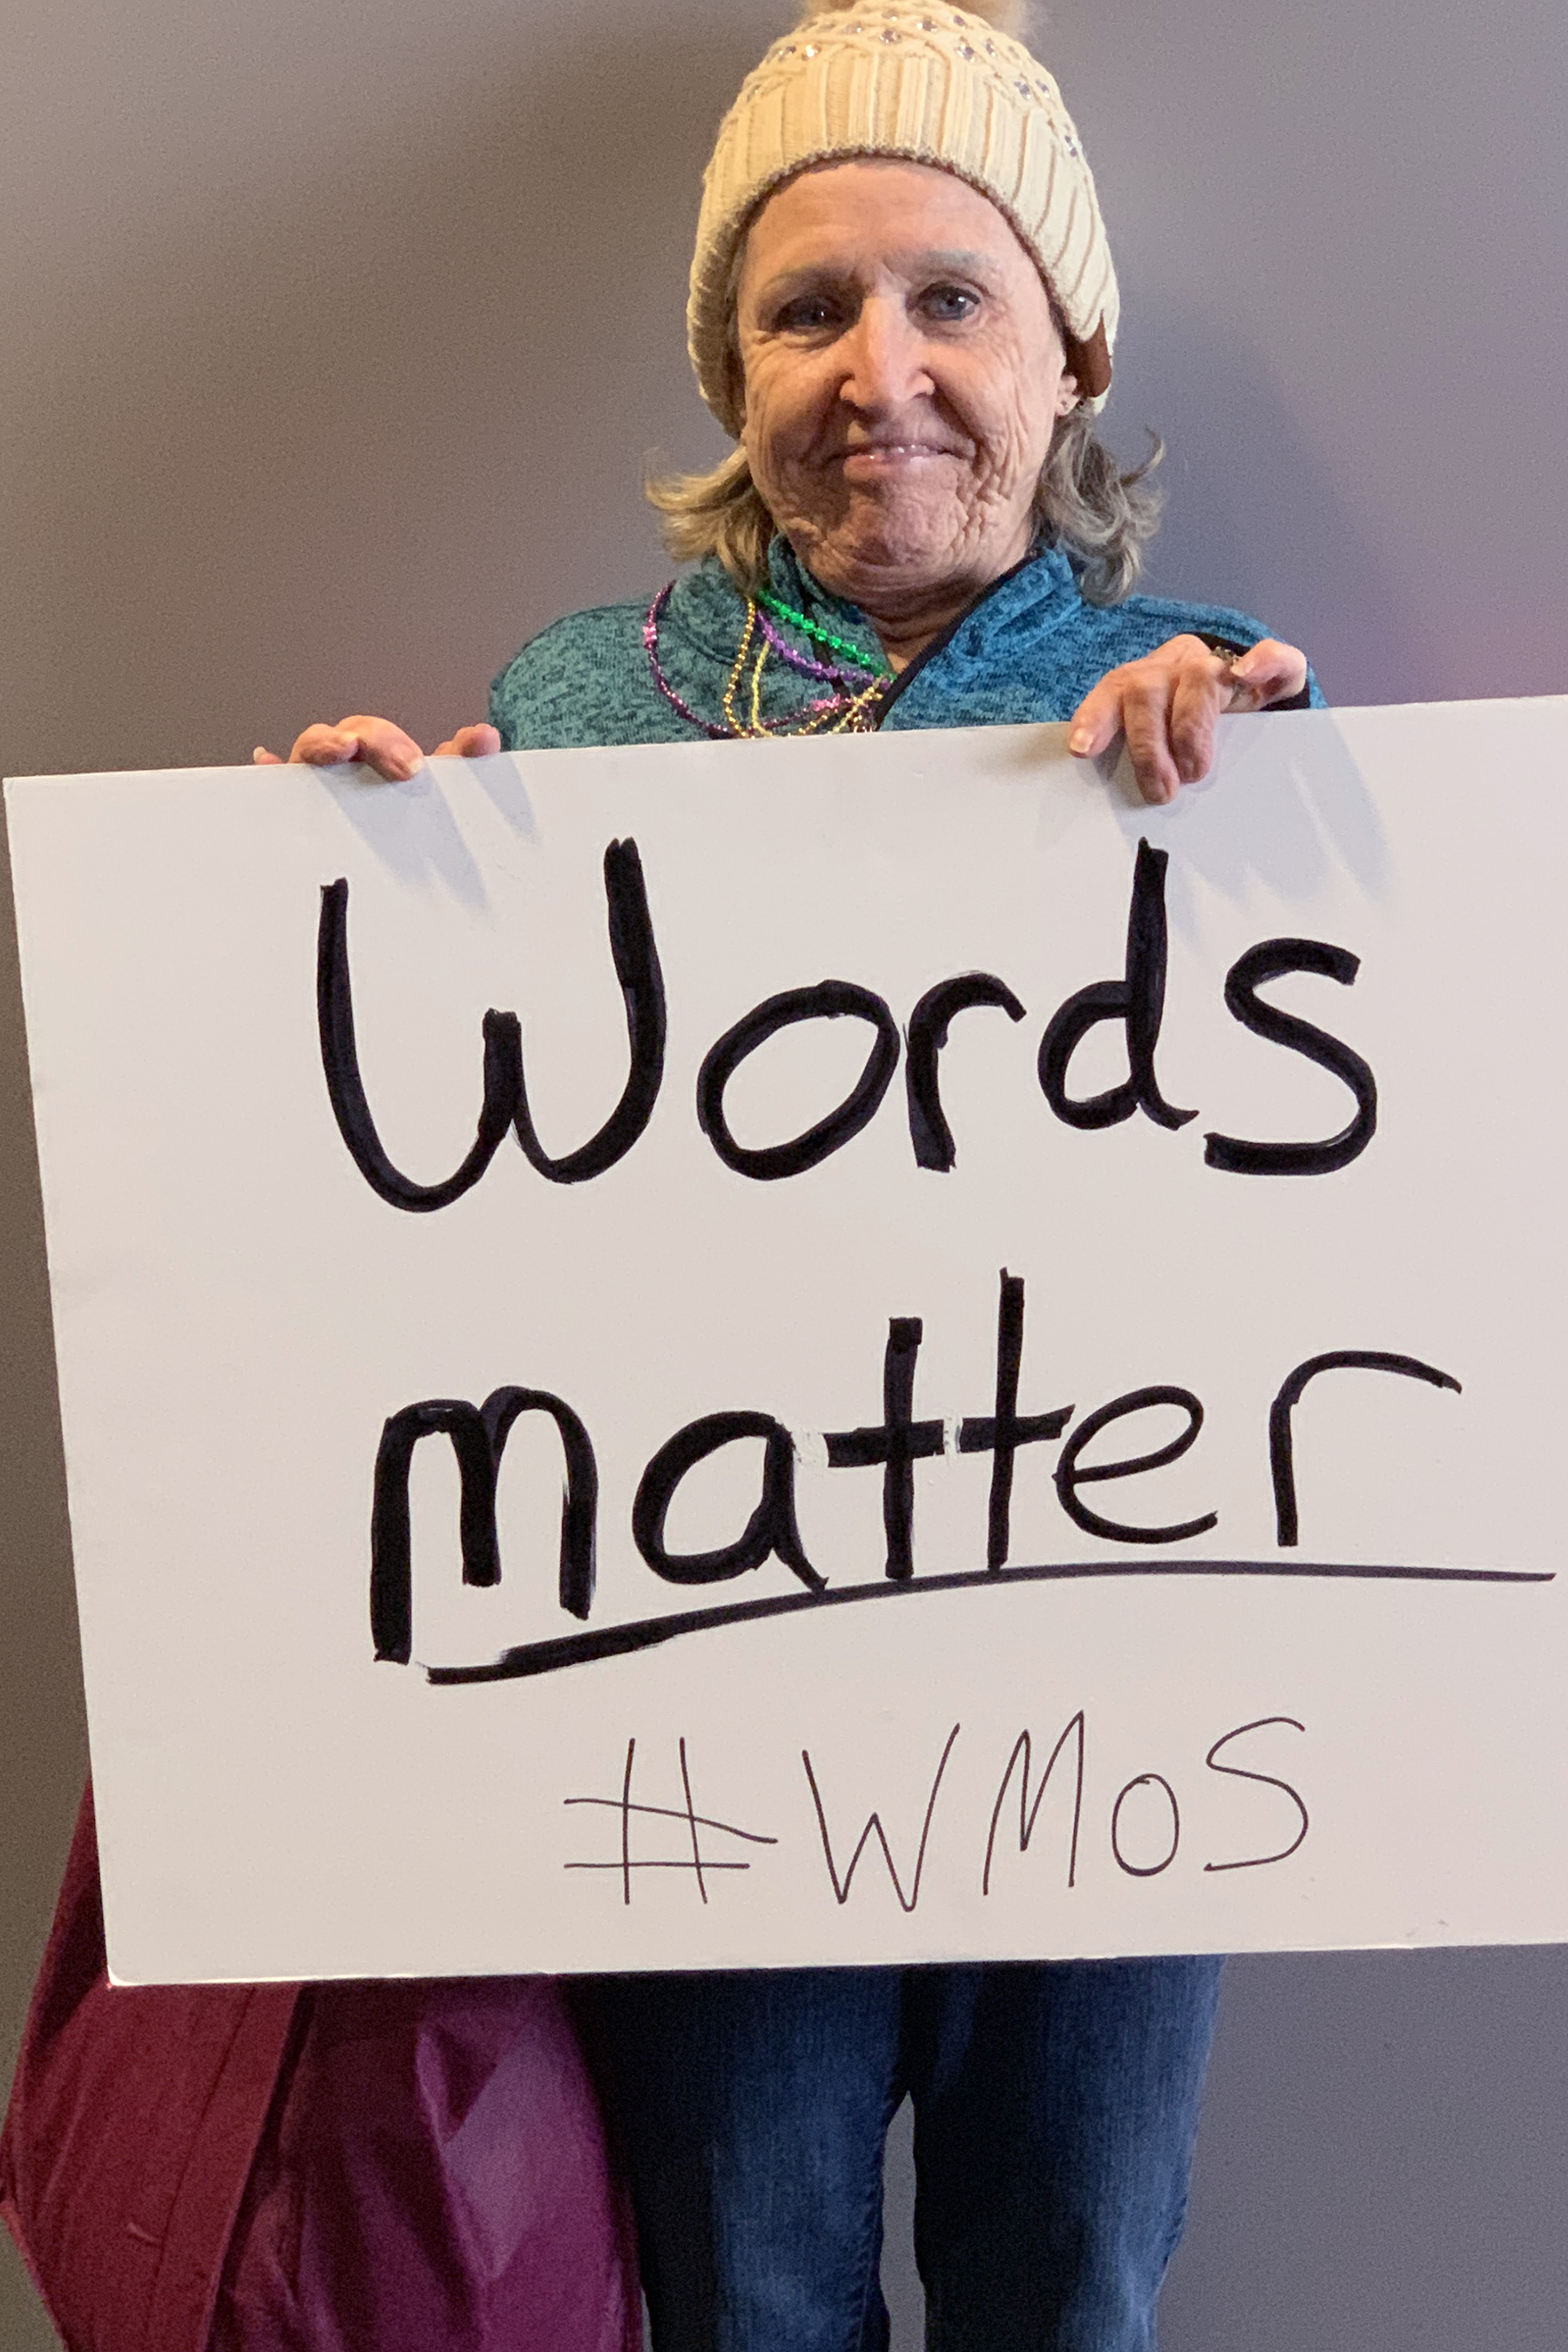 Words
matter
#WMoS